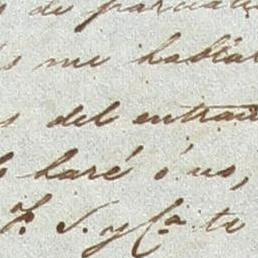 de
s me hablar
s del entrar
haré ó no,
F. S. y Cª te